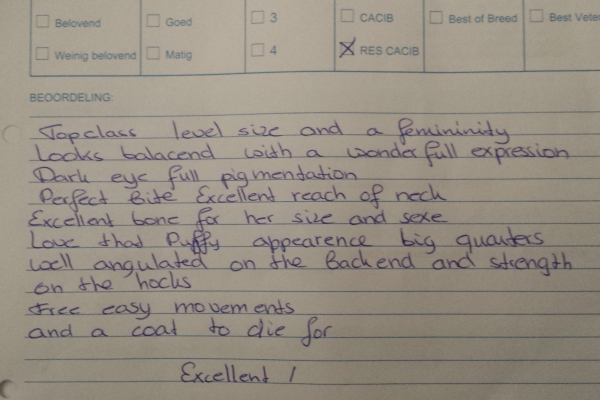 Belovend Goed 3 CACIB Best of Breed Best Veter
Weinig belovend Matig 4 RES CACIB
BEOORDELING:
Topclass level size and a femininity
Looks balacend with a wonderfull expression
Dark eye full pigmentation
Perfect Bite Excellent reach of neck
Excellent bone for her size and sexe
Love that Puffy appearence big quarters
well angulated on the Backend and strength
on the hocks
Free easy movements
and a coat to die for
Excellent 1